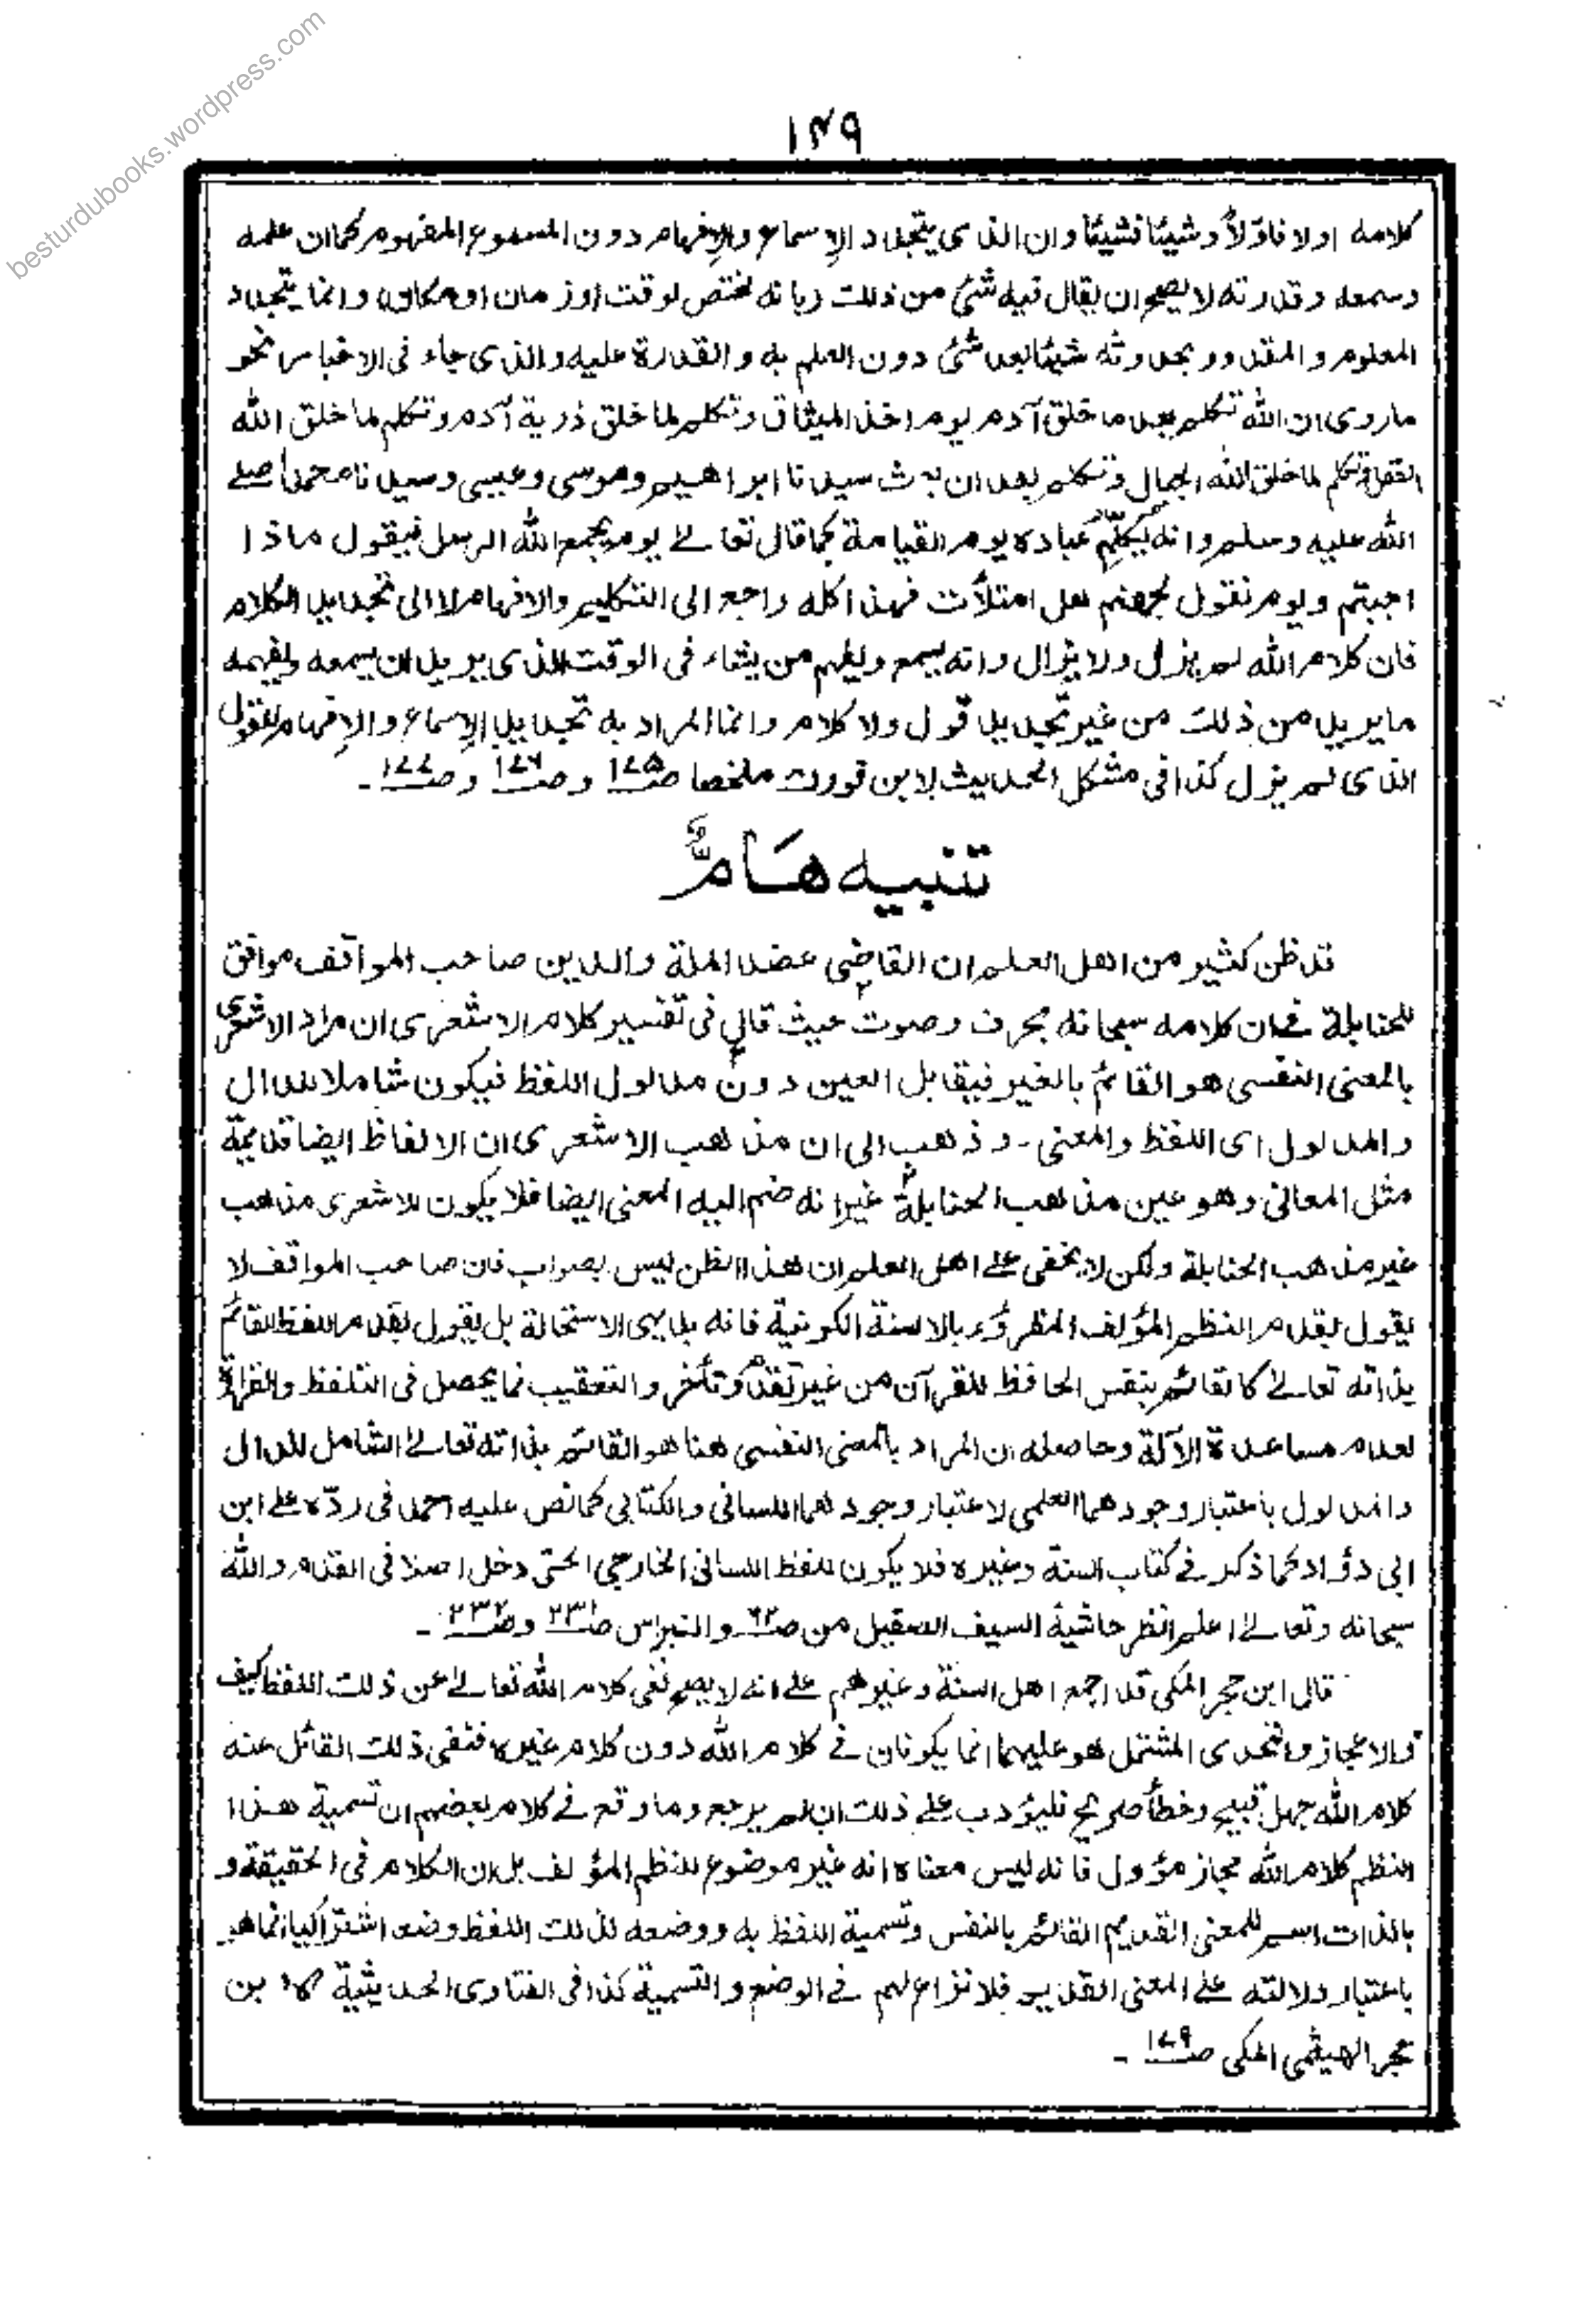 besturdubooks.wordpress.com
١٤٩
كلامه اولا فاوّلاً وشيئا فشيئا وان الذى يتجدد الإسماع والإفهام دون المسموع المفهوم كما ان علمه
وسمعه وقدرته لا يصح ان يقال فيه شئ من ذلك ربانه لختص لوقت (وزمان او مكان) وانما يتجدد
المعلوم و المقدور بحدوثه شيئا بعد شئ دون العلم به و القدرة عليه والذى جاء فى الاخبار نحو
ماروى ان الله تكلم بعد ما خلق آدم يوم اخذ الميثاق وتكلم لما خلق ذرية آدم وتكلم لما خلق الله
لما خلق الله الجبال وتكلم بعد ان بعث سيدنا ابراهيم وموسى وعيسى وسيدنا محمدا صلے
الله عليه وسلم وانه يُكلِّم عباده يوم القيامة كما قال تعالے يوم يجمع الله الرسل فيقول ماذا
اجبتم ويوم نقول لجهنم هل امتلأت فهذا كله راجع الى التكليم والافهام لا الى تجديد الكلام
فان كلام الله لم يزل ولا يزال وانه يسمع ويفهم من يشاء فى الوقت الذى يريد ان يسمعه ويفهمه
ما يريد من ذلك من غير تجديد قول ولا كلام وانما المراد به تجديد الإسماع والإفهام للقول
الذى لم يزل كذا فى مشكل الحديث لابن فورك ملخصا ص١٧٥ و ص١٧٦ و ص١٧٧ ـ
تنبيه هَامٌّ
قد ظن كثير من اهل العلم ان القاضى عضد الملة والدين صاحب المواقف موافق
للحنابلة فے ان كلامه سبحانه بحرف وصوت حيث قال فى تفسير كلام الاشعرى ان مراد الاشعرى
بالمعنى النفسى هو القائم بالغير فيقابل العين دون مدلول اللفظ فيكون شاملا للدال
والمدلول اى اللفظ والمعنى ـ وذهب الى ان مذهب الاشعرى ان الالفاظ ايضا قديمة
مثل المعانى وهو عين مذهب الحنابلة غير انه ضم اليه المعنى ايضا فلا يكون للاشعرى مذهب
غير مذهب الحنابلة ولكن لا يخفى علے اهل العلم ان هذا الظن ليس بصواب فان صاحب المواقف لا
يقول بقدم النظم المؤلف المقروء بالالسنة الكونية فانه بديهى الاستحالة بل يقول بقدم اللفظ القائم
بذاته تعالے كالقائم بنفس الحافظ للقرآن من غير تقدم وتأخر و التعقيب فما يحصل فى التلفظ والقراءة
لعدم مساعدة الآلة وحاصله ان المراد بالمعنى النفسى هنا هو القائم بذاته تعالے الشامل للدال
والمدلول باعتبار وجودهما العلمى لا عتبار وجودهما اللسانى والكتابى كما نص عليه احمد فى ردّه علے ابن
ابى دؤاد كما ذكر فے كتاب السنة وغيره فلا يكون للفظ اللسانى الخارجى الحسّى دخل اصلا فى القدم والله
سبحانه وتعالے اعلم انظر حاشية السيف الصقيل من ص٦٢ والنبراس ص٢٣١ وص٢٣٢ ـ
قال ابن حجر المكى قد اجمع اهل السنة وغيرهم علے انه لا يصح نفى كلام الله تعالے عن ذلك اللفظ كيف
والاعجاز والتحدى المشتمل هو عليهما انما يكونان فے كلام الله دون كلام غيره فنفى ذلك القائل عنه
كلام الله جهل قبيح وخطأ صريح فليؤدب علے ذلك ان لم يرجع وما وقع فے كلام بعضهم ان تسمية هذا
النظم كلام الله مجاز مؤول فانه ليس معناه انه غير موضوع للنظم المؤلف بل ان الكلام فى الحقيقة و
بالذات اسم للمعنى القديم القائم بالنفس وتسمية اللفظ به ووضعه لذلك اللفظ وضعا اشتراكيا انما هو
باعتبار دلالته علے المعنى القديم فلا نزاع لهم فے الوضع والتسمية كذا فى الفتاوى الحديثية لابن
حجر الهيثمى المكى ص١٧٩ ـ